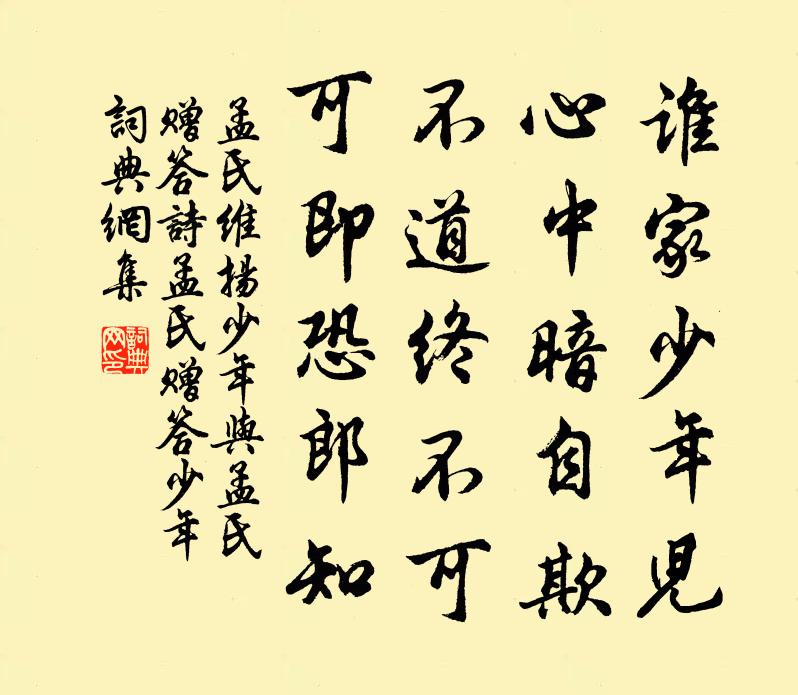 誰家少年兒
心中暗自欺
不道終不可
可即恐郎知
孟氏維揚少年與孟氏
贈答詩孟氏贈答少年
詞典網集
詞典
网印